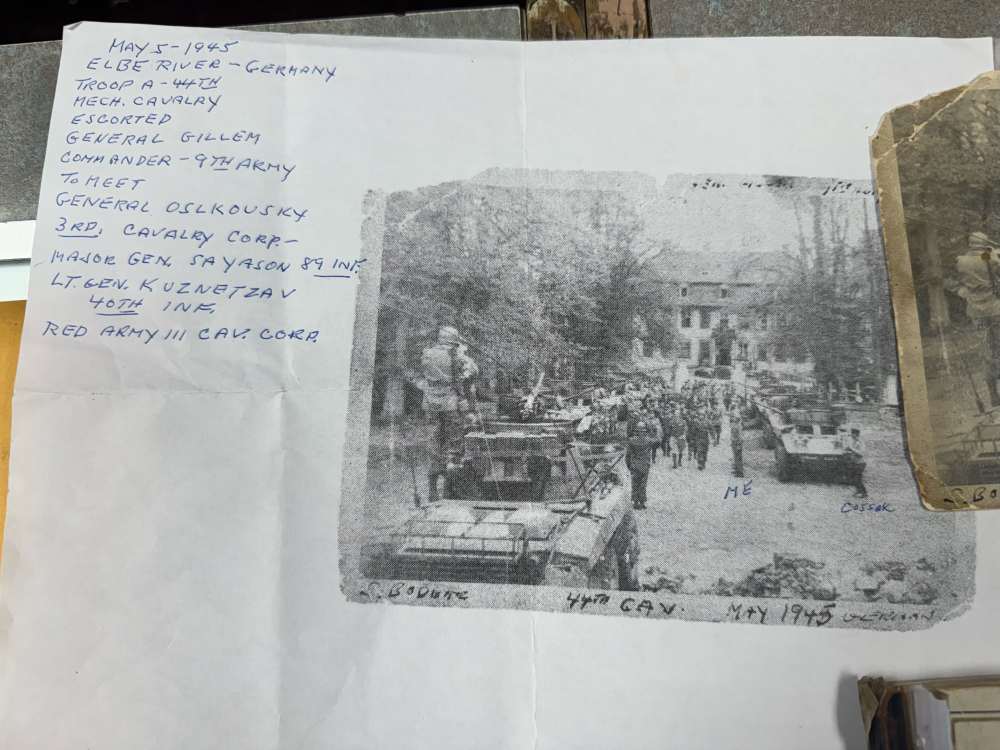 MAY 5-1945
ELBE RIVER - GERMANY
TROOP A - 44TH
MECH. CAVALRY
ESCORTED
GENERAL GILLEM
COMMANDER - 9TH ARMY
TO MEET
GENERAL OSLKOUSKY
3RD. CAVALRY CORP-
MAJOR GEN. SAYASON 89 INF.
LT. GEN. KUZNETZAV
40TH INF.
RED ARMY III CAV. CORP.
ME
Cossak
44TH CAV. MAY 1945 GERMAN